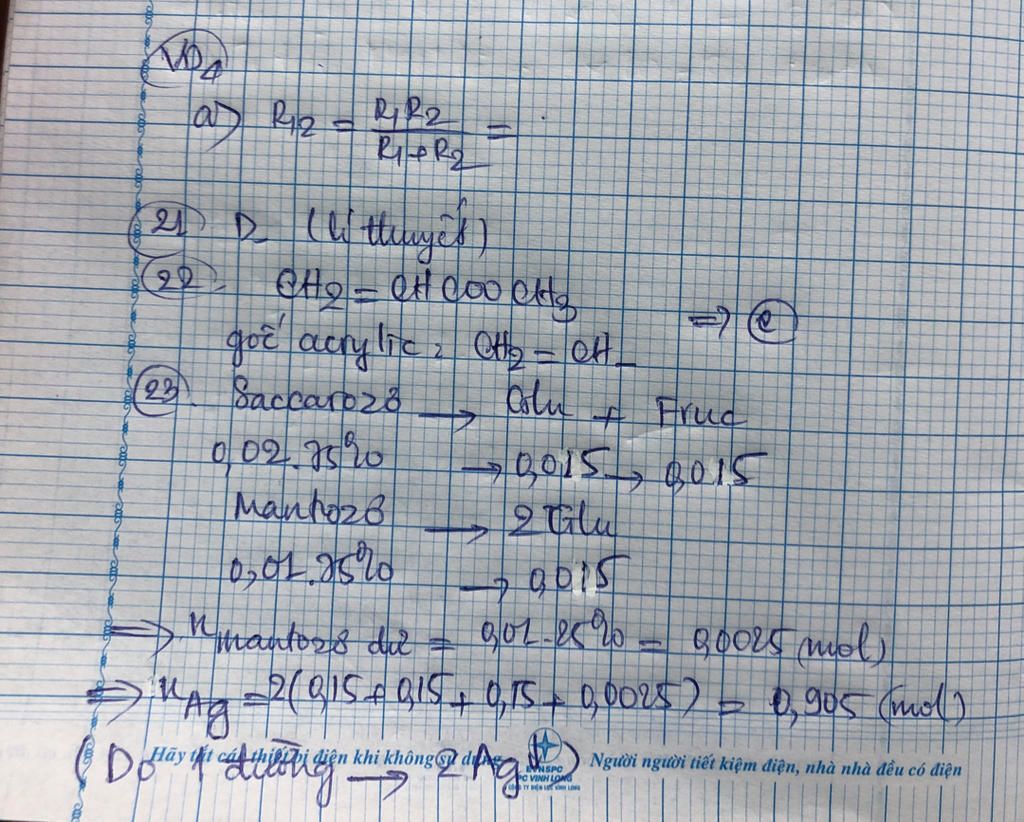 VD4
a) R12 = R1R2 / R1+R2 =
21 D (lí thuyết)
22. CH2 = CHCOOCH3
=> C
gốc acrylic: CH2 = CH_
23. Saccarozơ → Glu + Fruc
0,02.75% → 0,015 → 0,015
Mantozơ → 2 Glu
0,01.75% → 0,015
=> n mantozơ dư = 0,01.25% = 0,0025 (mol)
=> nAg = 2(0,15 + 0,15 + 0,15 + 0,0025) = 0,905 (mol)
(Do 1 đường → 2 Ag)
Hãy tắt các thiết bị điện khi không sử dụng
EVNSPC
PC VINH LONG
CÔNG TY ĐIỆN LỰC VĨNH LONG
Người người tiết kiệm điện, nhà nhà đều có điện